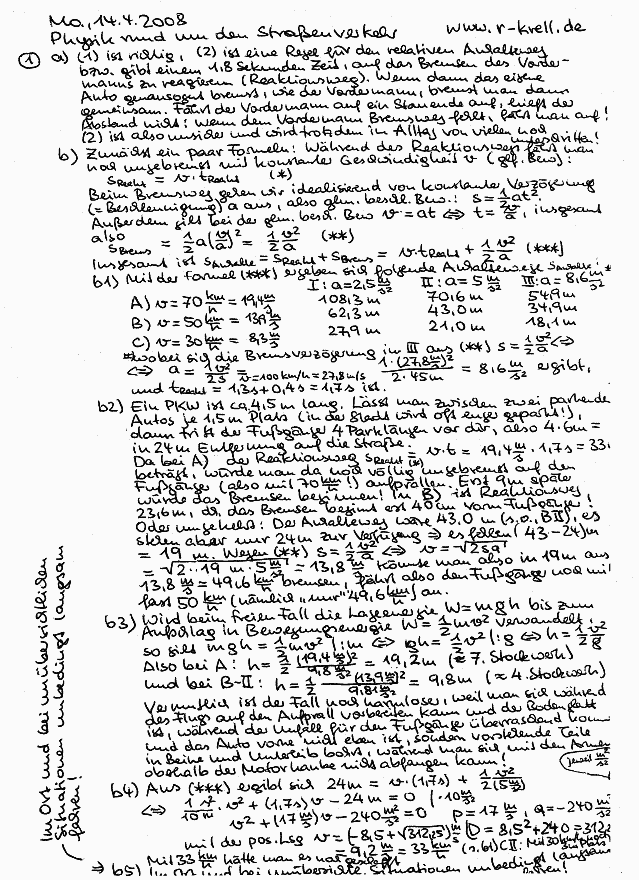 Mo., 14.4.2008
Physik rund um den Straßenverkehr www.r-krell.de
① a) (1) ist richtig, (2) ist eine Regel für den relativen Anhalteweg
bzw. gibt einem 1,8 Sekunden Zeit, auf das Bremsen des Vorder-
manns zu reagieren (Reaktionsweg). Wenn dann das eigene
Auto genausogut bremst, wie der Vordermann, bremst man dann
gemeinsam. Fährt der Vordermann auf ein Stauende auf, hilft der
Abstand nicht: Wenn dem Vordermann Bremsweg fehlt, fährt man auf!
(2) ist also unsicher und wird trotzdem im Alltag von vielen noch
unterschritten!
b) Zunächst ein paar Formeln: Während des Reaktionswegs fährt man
noch ungebremst mit konstanter Geschwindigkeit v (glf. Bew):
s_Reakt = v · t_Reakt (*)
Beim Bremsweg gehen wir idealisierend von konstanter Verzögerung
(= Beschleunigung) a aus, also glm. beschl. Bew.: s = ½at².
Außerdem gilt bei der glm. besch. Bew v = at ⇔ t = v/a, insgesamt
also
s_Brems = ½a(v/a)² = ½ v²/a (**)
Insgesamt ist s_Anhalte = s_Reakt + s_Brems = v·t_Reakt + ½ v²/a (***)
b1) Mit der Formel (***) ergeben sich folgende Anhaltewege s_Anhalte:
I: a=2,5 m/s² II: a=5 m/s² III: a=8,6 m/s² *
A) v = 70 km/h = 19,4 m/s 108,3 m 70,6 m 54,9 m
B) v = 50 km/h = 13,9 m/s 62,3 m 43,0 m 34,9 m
C) v = 30 km/h = 8,3 m/s 27,9 m 21,0 m 18,1 m
* wobei sich die Bremsverzögerung in III aus (**) s = ½ v²/a ⇔
⇔ a = ½ v²/s = v=100km/h=27,8m/s 1·(27,8 m/s)² / 2·45m = 8,6 m/s² ergibt,
und t_Reakt = 1,3s + 0,4s = 1,7s ist.
b2) Ein PKW ist ca. 4,5 m lang. Lässt man zwischen zwei parkenden
Autos je 1,5 m Platz (in der Stadt wird oft enger geparkt!),
dann tritt der Fußgänger 4 Parklängen vor dir, also 4·6m =
in 24m Entfernung auf die Straße.
Da bei A) der Reaktionsweg s_Reakt = v·t = 19,4 m/s · 1,7s = 33
beträgt, würde man da noch völlig ungebremst auf den
Fußgänger (also mit 70 km/h!) aufprallen. Erst 9m später
würde das Bremsen beginnen! In B) ist Reaktionsweg
23,6m, d.h. das Bremsen beginnt erst 40cm vorm Fußgänger!
Oder umgekehrt: Der Anhalteweg wäre 43,0 m (s.o., BII), es
stehen aber nur 24m zur Verfügung ⇒ es fehlen (43-24)m
= 19 m. Wegen (**) s = ½ v²/a ⇔ v = √2sa
= √2·19 m·5 m/s² = 13,8 m/s könnte man also in 19m aus
13,8 m/s = 49,6 km/h bremsen, fährt also den Fußgänger noch mit
fast 50 km/h (nämlich „nur" 49,6 km/h) an.
b3) Wird beim freien Fall die Lageenergie W=mgh bis zum
Aufschlag in Bewegungsenergie W = ½mv² verwandelt,
so gilt mgh = ½mv² |:m ⇔ gh = ½v² |:g ⇔ h = ½ v²/g
Also bei A: h = ½ (19,4 m/s)² / 9,8 m/s² = 19,2m (≈ 7. Stockwerk)
und bei B-II: h = ½ (13,9 m/s)² / 9,81 m/s² = 9,8m (≈ 4. Stockwerk)
Vermutlich ist der Fall noch harmloser, weil man sich während
des Flugs auf den Aufprall vorbereiten kann und der Boden glatt
ist, während der Unfall für den Fußgänger überraschend kommt
und das Auto vorne nicht eben ist, sondern vorstehende Teile
in Beine und Unterleib bohrt, während man sich mit den Armen
oberhalb der Motorhaube nicht abfangen kann!
(jeweils m/s²)
b4) Aus (***) ergibt sich 24m = v·(1,7s) + ½ v²/(5 m/s²)
⇔ 1/10 s²/m · v² + (1,7s) v − 24m = 0 | ·10 m/s²
v² + (17 m/s) v − 240 m²/s² = 0 p = 17 m/s, q = −240 m²/s²
mit der pos. Lsg v = (−8,5 + √312,25) m/s D = 8,5² + 240 = 312
= 9,2 m/s = 33 km/h
Mit 33 km/h hätte man es
⇒ b5) Im Ort und bei unübersichtl. Situationen unbedingt langsam
fahren!
Im Ort und bei unübersichtlichen
Situationen unbedingt langsam
fahren!